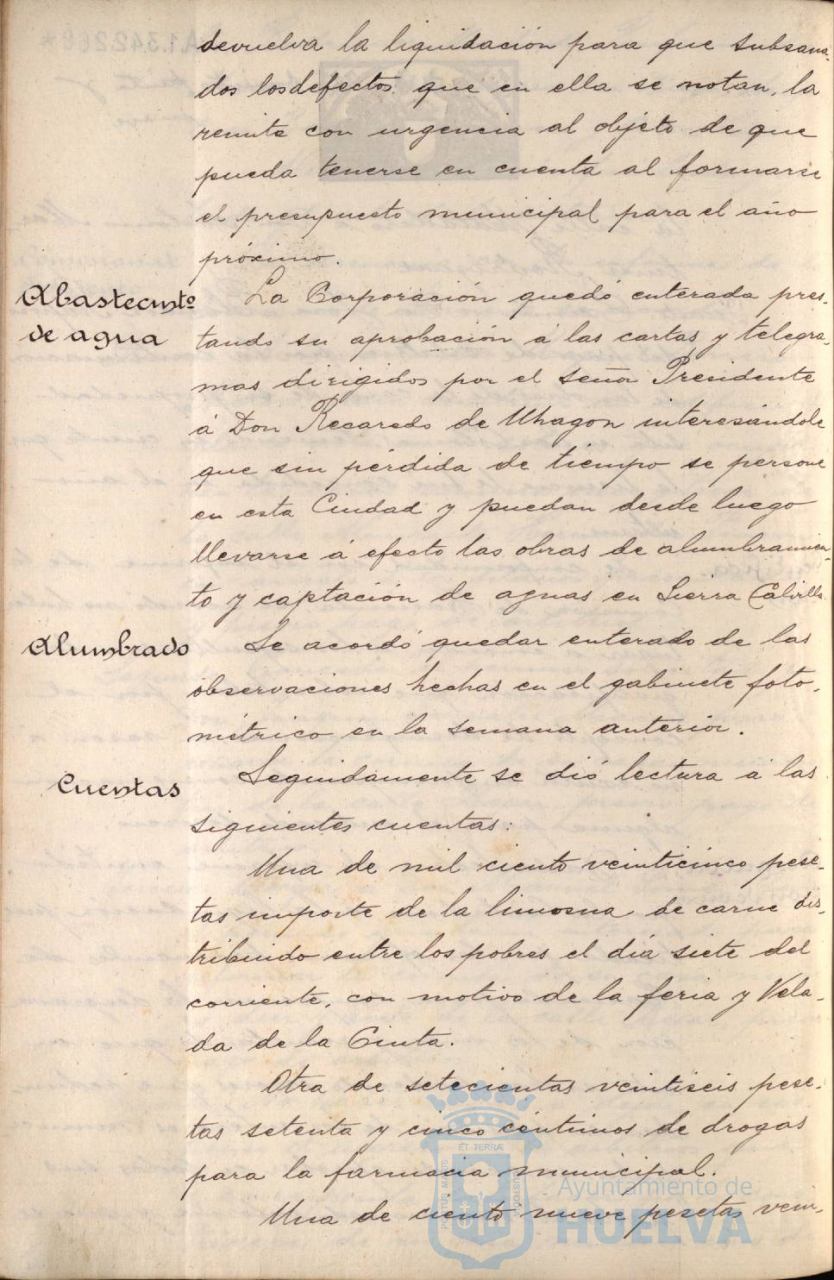 devuelva la liquidación para que subsana-
dos los defectos que en ella se notan, la
remita con urgencia al objeto de que
pueda tenerse en cuenta al formarse
el presupuesto municipal para el año
próximo.
Abastecimtº
de agua
La Corporación quedó enterada pres-
tando su aprobación á las cartas y telegra-
mas dirigidos por el Señor Presidente
á Don Recaredo de Uhagon interesándole
que sin pérdida de tiempo se persone
en esta Ciudad y puedan desde luego
llevarse á efecto las obras de alumbramien-
to y captación de aguas en Sierra Calvilla
Alumbrado
Se acordó quedar enterado de las
observaciones hechas en el gabinete foto-
métrico en la semana anterior.
Cuentas
Seguidamente se dió lectura á las
siguientes cuentas:
Una de mil ciento veinticinco pese-
tas importe de la limosna de carne dis-
tribuido entre los pobres el día siete del
corriente, con motivo de la feria y Vela-
da de la Cinta.
Otra de setecientas veintiseis pese-
tas setenta y cinco céntimos de drogas
para la farmacia municipal.
Una de ciento nueve pesetas vein-
Ayuntamiento de
HUELVA